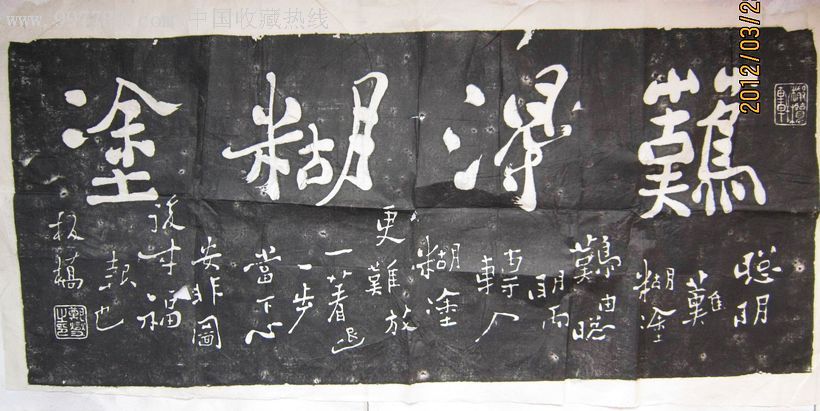 中国收藏热线
2012/03/2
難得糊塗
聰明
難
糊塗
難由聰
明而
轉入
糊塗
更難放
一著退
一步
當下心
安非圖
後來福
報也
板橋